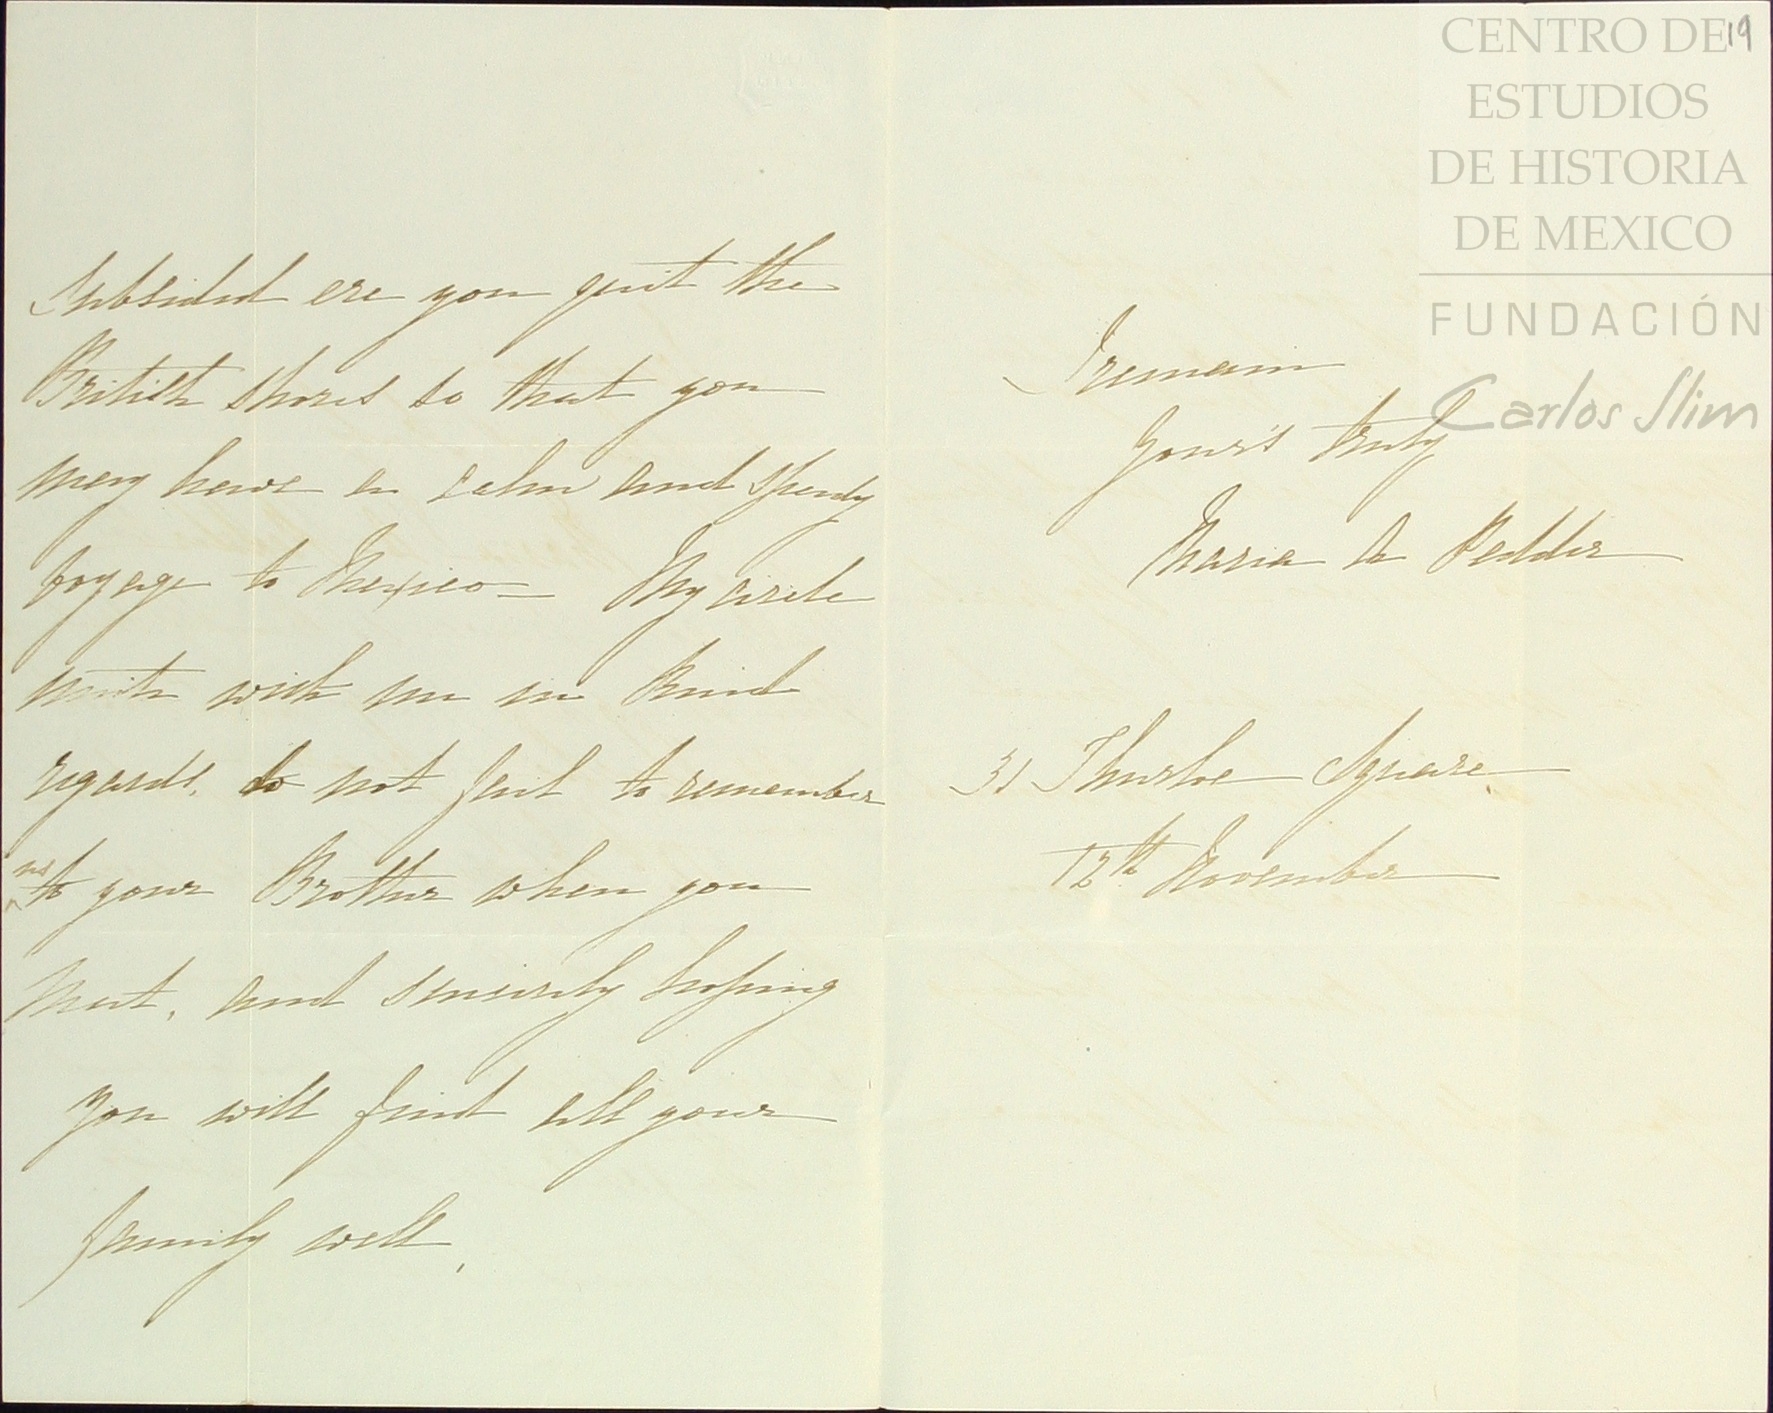 subsided ere you quit the
British shores so that you
may have a calm and speedy
voyage to Mexico — My circle
unite with me in kind
regards, do not fail to remember
us
to your Brother when you
meet, and sincerely hoping
you will find all your
family well,
I remain
Your's truly
Maria de Pedder
31 Thurloe Square,
12th November
19
CENTRO DE
ESTUDIOS
DE HISTORIA
DE MEXICO
FUNDACIÓN
Carlos Slim